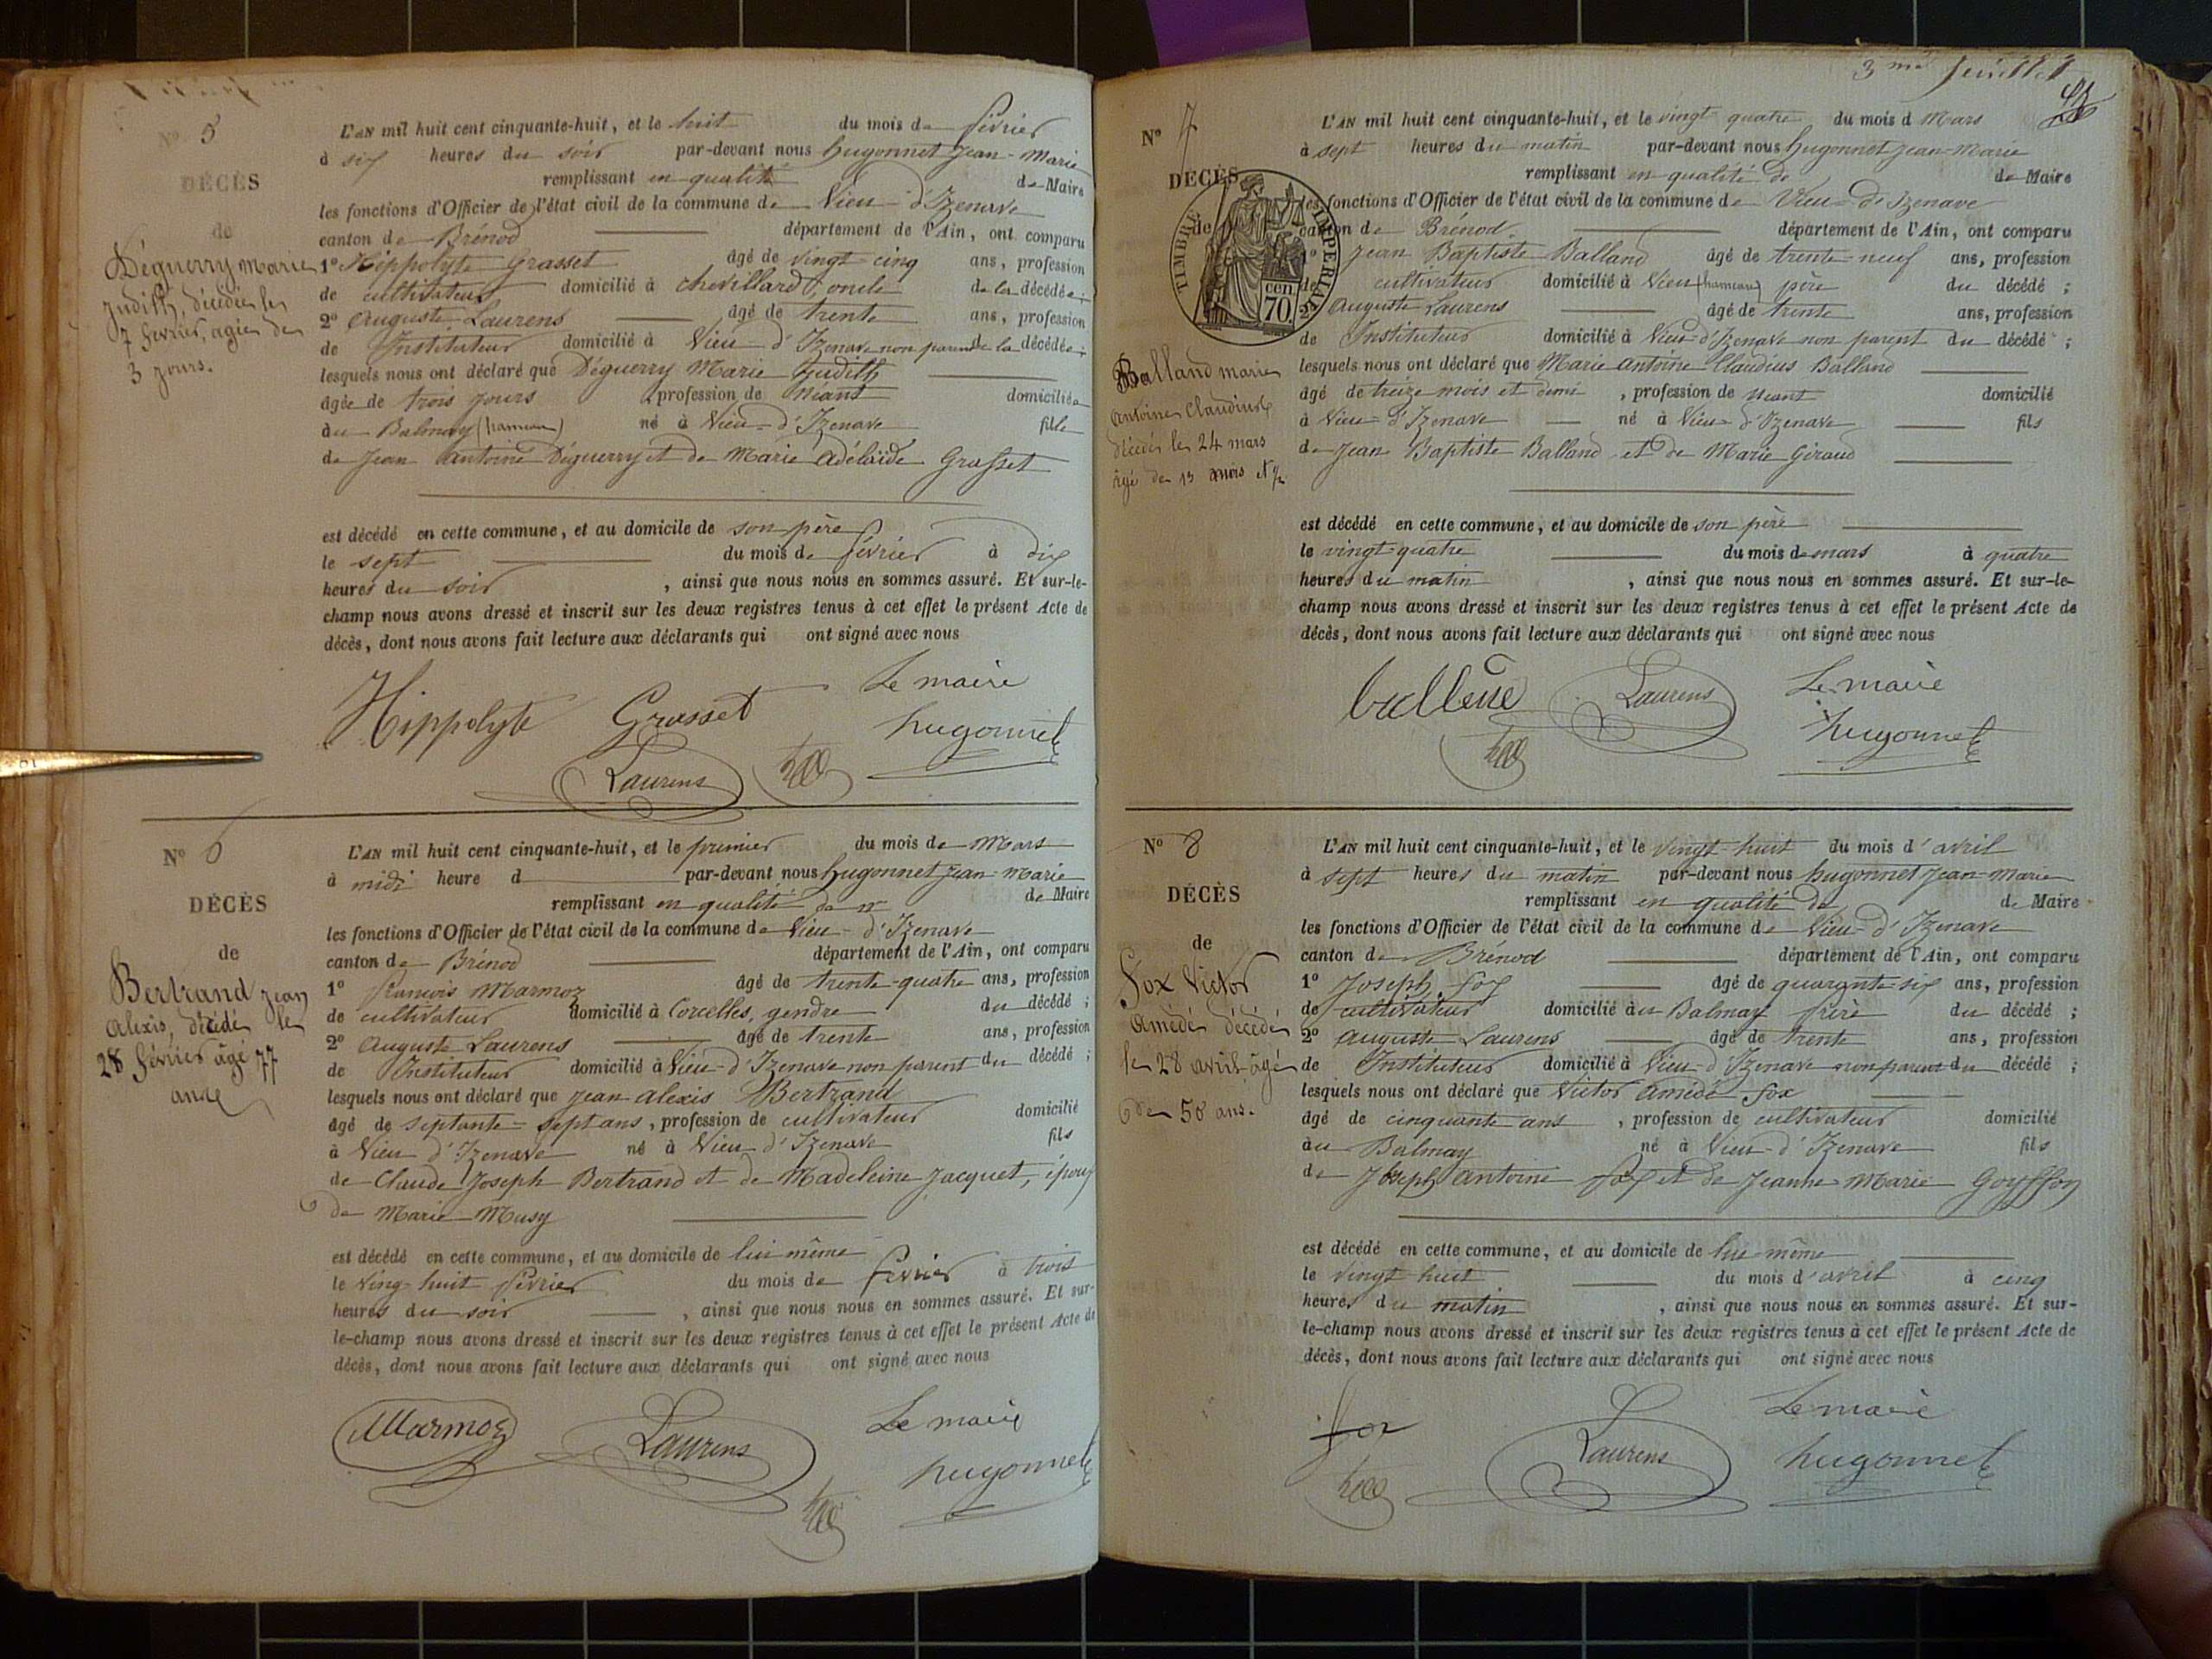 N° 5
DÉCÈS
de
Déguerry Marie
Judith, décédée le
7 février, agée de
3 jours.
L'AN mil huit cent cinquante-huit, et le huit du mois de février
à six heures du soir par-devant nous hugonnet Jean-Marie
remplissant en qualité de Maire
les fonctions d'Officier de l'état civil de la commune de Vieu-d'Izenave
canton de Brénod département de l'Ain, ont comparu
1° Hippolyte Grasset âgé de vingt-cinq ans, profession
de cultivateur domicilié à chevillard, oncle de la décédée;
2° Auguste Laurens âgé de trente ans, profession
de Instituteur domicilié à Vieu-d'Izenave non parent de la décédée;
lesquels nous ont déclaré que Déguerry Marie Judith
âgée de trois jours profession de néant domiciliée
au Balmay (hameau) né à Vieu-d'Izenave fille
de Jean antoine Déguerry et de Marie Adélaïde Grasset
est décédé en cette commune, et au domicile de son père
le sept du mois de février à dix
heures du soir, ainsi que nous nous en sommes assuré. Et sur-le-
champ nous avons dressé et inscrit sur les deux registres tenus à cet effet le présent Acte de
décès, dont nous avons fait lecture aux déclarants qui ont signé avec nous
Hippolyte Grasset Le maire
Laurens hugonnet
N° 6
DÉCÈS
de
Bertrand Jean
Alexis, décédé le
28 février âgé 77
ans
L'AN mil huit cent cinquante-huit, et le premier du mois de Mars
à midi heure d par-devant nous hugonnet Jean-Marie
remplissant en qualité de de Maire
les fonctions d'Officier de l'état civil de la commune de Vieu-d'Izenave
canton de Brénod département de l'Ain, ont comparu
1° françois Marmoz âgé de trente-quatre ans, profession
de cultivateur domicilié à Corcelles, gendre du décédé;
2° Auguste Laurens âgé de trente ans, profession
de Instituteur domicilié à Vieu-d'Izenave non parent du décédé;
lesquels nous ont déclaré que Jean alexis Bertrand
âgé de septante-sept ans, profession de cultivateur domicilié
à Vieu d'Izenave né à Vieu-d'Izenave fils
de Claude Joseph Bertrand et de Madeleine Jacquet, époux
de Marie Musy
est décédé en cette commune, et au domicile de lui même
le ving-huit février du mois de février à trois
heures du soir, ainsi que nous nous en sommes assuré. Et sur-
le-champ nous avons dressé et inscrit sur les deux registres tenus à cet effet le présent Acte de
décès, dont nous avons fait lecture aux déclarants qui ont signé avec nous
Marmoz Laurens Le maire
hugonnet
3me feuillet
N° 7
DÉCÈS
de
TIMBRE IMPERIAL
70 cen
Balland marie
antoine Claudius
décédé le 24 mars
âgé de 13 mois et ½
L'AN mil huit cent cinquante-huit, et le vingt quatre du mois d Mars
à sept heures du matin par-devant nous hugonnet Jean-Marie
remplissant en qualité de de Maire
les fonctions d'Officier de l'état civil de la commune de Vieu-d'Izenave
canton de Brénod département de l'Ain, ont comparu
Jean Baptiste Balland âgé de trente-neuf ans, profession
de cultivateur domicilié à Vieu (hameau) père du décédé;
2° Auguste Laurens âgé de trente ans, profession
de Instituteur domicilié à Vieu-d'Izenave non parent du décédé;
lesquels nous ont déclaré que Marie antoine Claudius Balland
âgé de treize mois et demi, profession de néant domicilié
à Vieu-d'Izenave né à Vieu-d'Izenave fils
de Jean Baptiste Balland et de Marie Giraud
est décédé en cette commune, et au domicile de son père
le vingt-quatre du mois de mars à quatre
heures du matin, ainsi que nous nous en sommes assuré. Et sur-le-
champ nous avons dressé et inscrit sur les deux registres tenus à cet effet le présent Acte de
décès, dont nous avons fait lecture aux déclarants qui ont signé avec nous
Laurens Le maire
hugonnet
N° 8
DÉCÈS
de
Fox Victor
Amédé décédé
le 28 avril âgé
de 50 ans.
L'AN mil huit cent cinquante-huit, et le vingt-huit du mois d'avril
à sept heures du matin par-devant nous hugonnet Jean-Marie
remplissant en qualité de de Maire
les fonctions d'Officier de l'état civil de la commune de Vieu-d'Izenave
canton de Brénod département de l'Ain, ont comparu
1° Joseph fox âgé de quarante-six ans, profession
de cultivateur domicilié au Balmay frère du décédé;
2° Auguste Laurens âgé de trente ans, profession
de Instituteur domicilié à Vieu-d'Izenave non parent du décédé;
lesquels nous ont déclaré que Victor Amédé fox
âgé de cinquante ans, profession de cultivateur domicilié
au Balmay né à Vieu-d'Izenave fils
de Joseph Antoine fox et de Jeanne Marie Goyffon
est décédé en cette commune, et au domicile de lui-même
le vingt-huit du mois d'avril à cinq
heures du matin, ainsi que nous nous en sommes assuré. Et sur-
le-champ nous avons dressé et inscrit sur les deux registres tenus à cet effet le présent Acte de
décès, dont nous avons fait lecture aux déclarants qui ont signé avec nous
fox Laurens Le maire
hugonnet